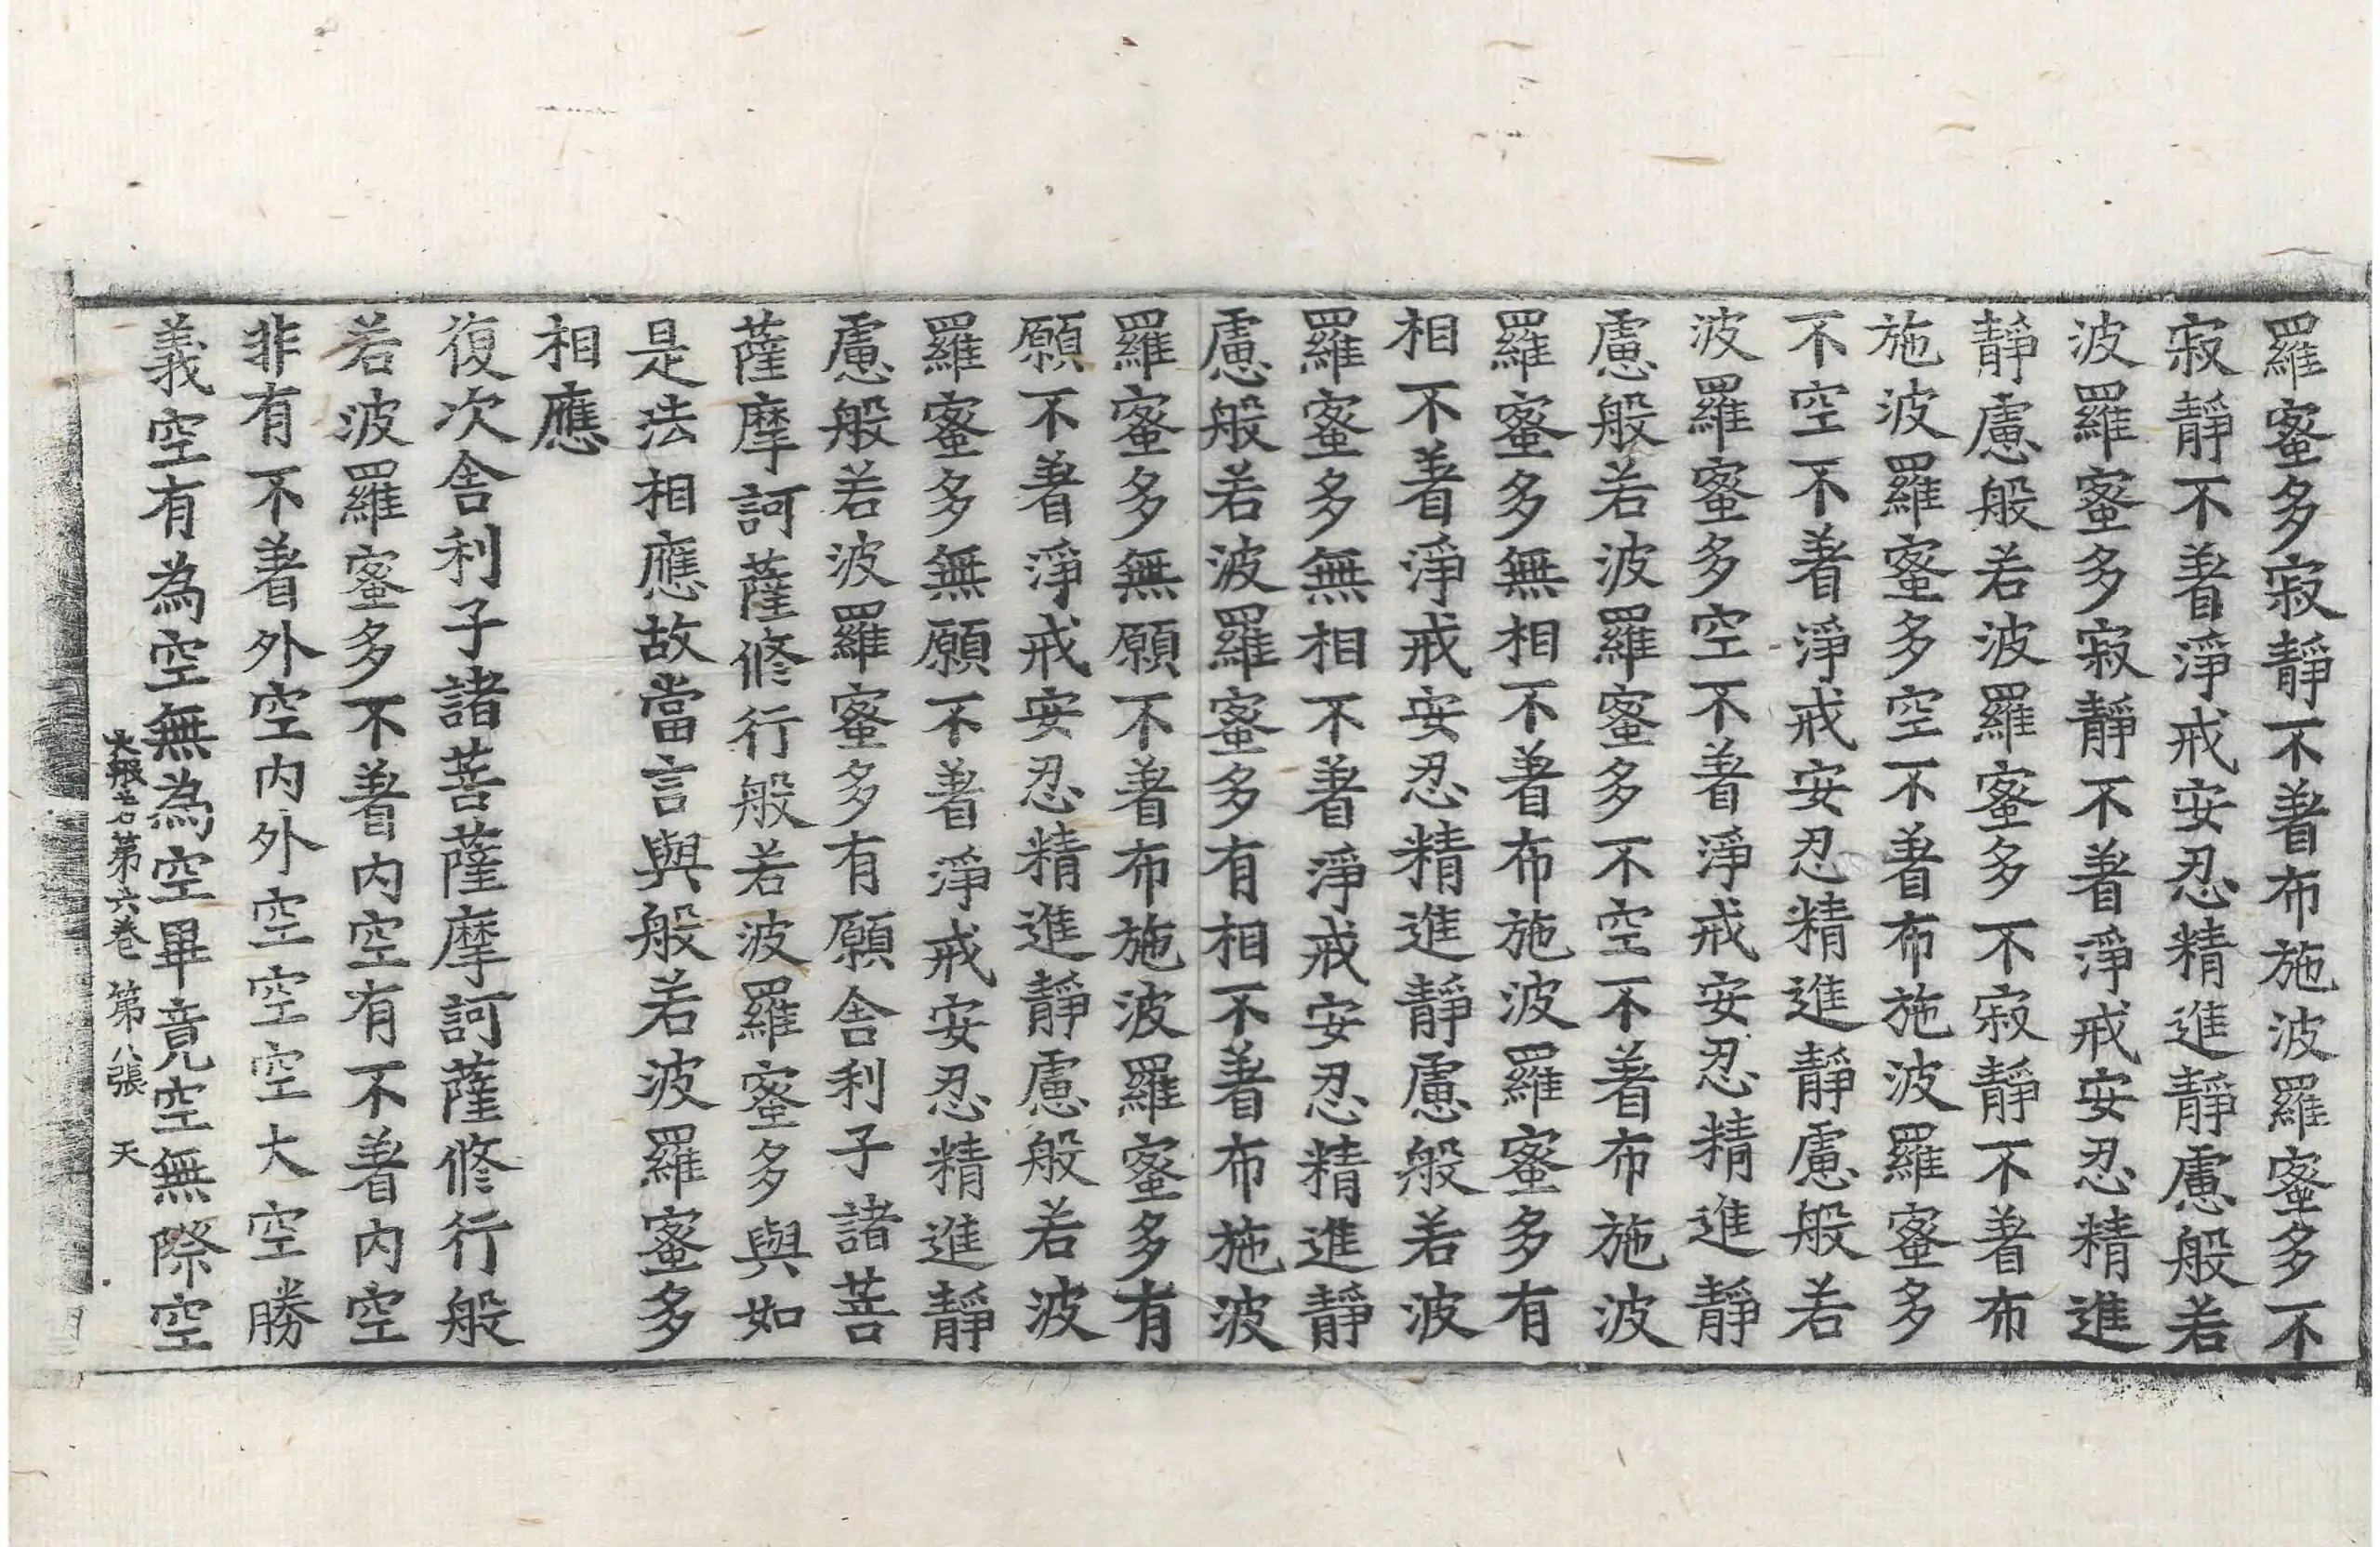 羅蜜多寂靜不著布施波羅蜜多不
寂靜不著淨戒安忍精進靜慮般若
波羅蜜多寂靜不著淨戒安忍精進
靜慮般若波羅蜜多不寂靜不著布
施波羅蜜多空不著布施波羅蜜多
不空不著淨戒安忍精進靜慮般若
波羅蜜多空不著淨戒安忍精進靜
慮般若波羅蜜多不空不著布施波
羅蜜多無相不著布施波羅蜜多有
相不著淨戒安忍精進靜慮般若波
羅蜜多無相不著淨戒安忍精進靜
慮般若波羅蜜多有相不著布施波
羅蜜多無願不著布施波羅蜜多有
願不著淨戒安忍精進靜慮般若波
羅蜜多無願不著淨戒安忍精進靜
慮般若波羅蜜多有願舍利子諸菩
薩摩訶薩修行般若波羅蜜多與如
是法相應故當言與般若波羅蜜多
相應
復次舍利子諸菩薩摩訶薩修行般
若波羅蜜多不著內空有不著內空
非有不著外空內外空空空大空勝
義空有為空無為空畢竟空無際空
大般若第六卷 第八張 天